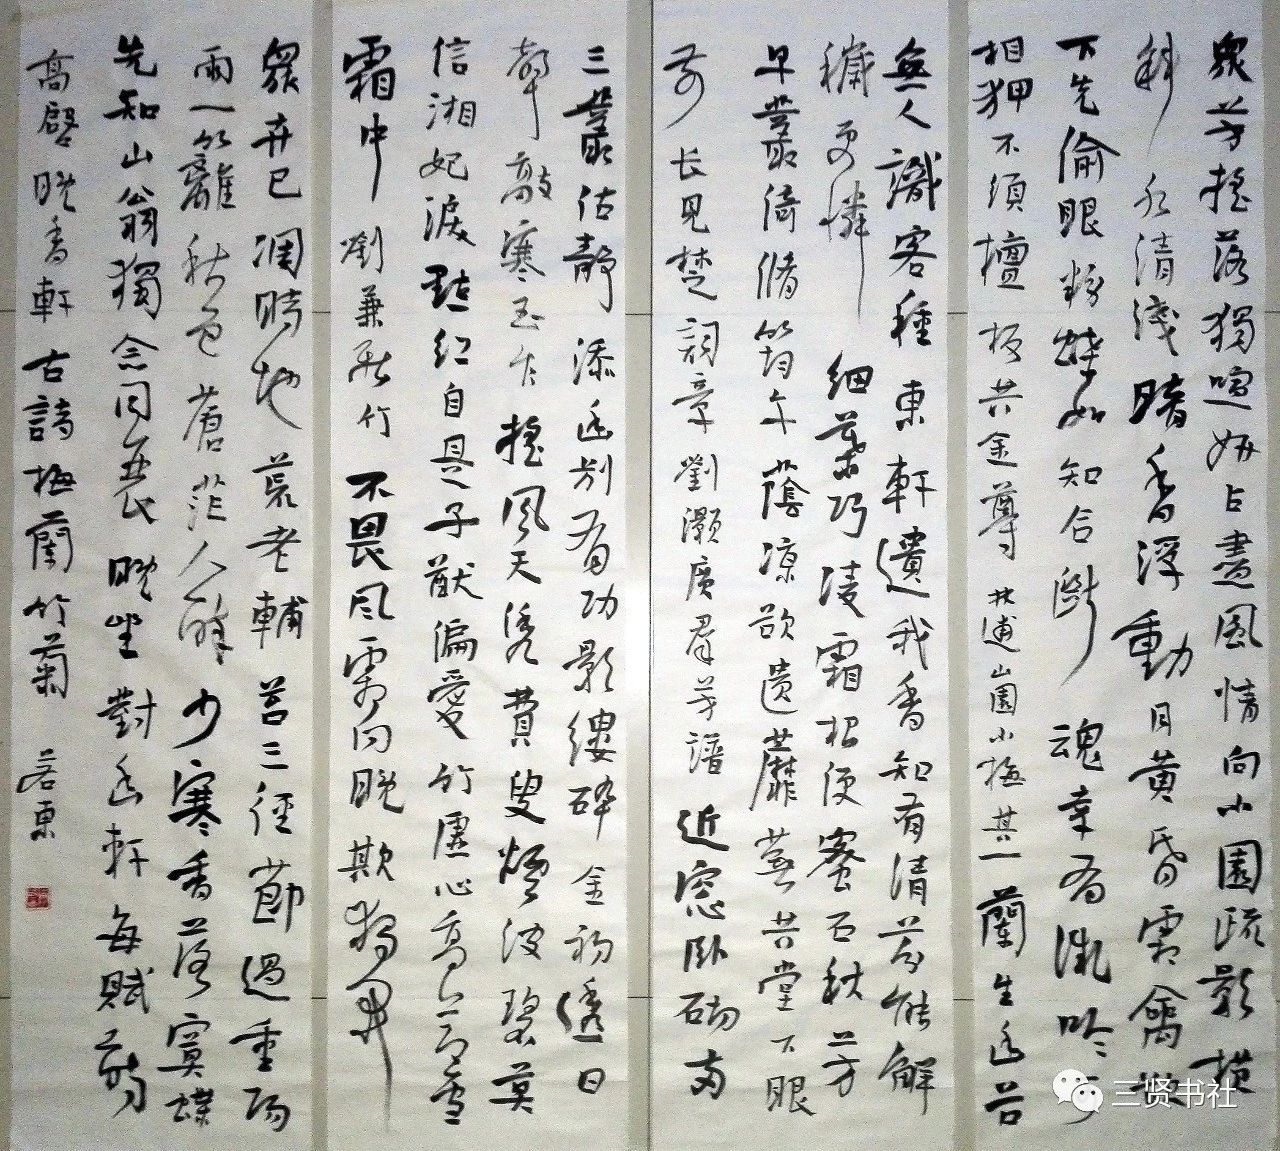 眾芳搖落獨喧妍占盡風情向小園疏影橫
斜水清淺暗香浮動月黃昏霜禽欲
下先偷眼粉蝶如知合斷魂幸有微吟可
相狎不須檀板共金尊林逋山園小梅其一蘭生幽谷
無人識客種東軒遺我香知有清芬能解
穢更憐細葉巧凌霜根便密石秋芳
早叢倚脩筠午蔭涼欲遺蘼蕪共堂下眼
前長見楚詞章劉灝廣群芳譜近窓臥砌兩
三叢佑靜添幽別有功影縷碎金初透日
聲敲寒玉乍搖風天憑費叟煙波碧莫
信湘妃淚點紅自是子猷偏愛竹虛心高節雪
霜中劉兼新竹不畏風霜向晚欺獨開
眾卉已凋時地荒老輔苔三徑節過重陽
雨一籬秋色蒼茫人醉少寒香落寞蝶
先知山翁獨念同衰晚坐對幽軒每賦詩
高啓晚香軒古詩梅蘭竹菊若東
三贤书社